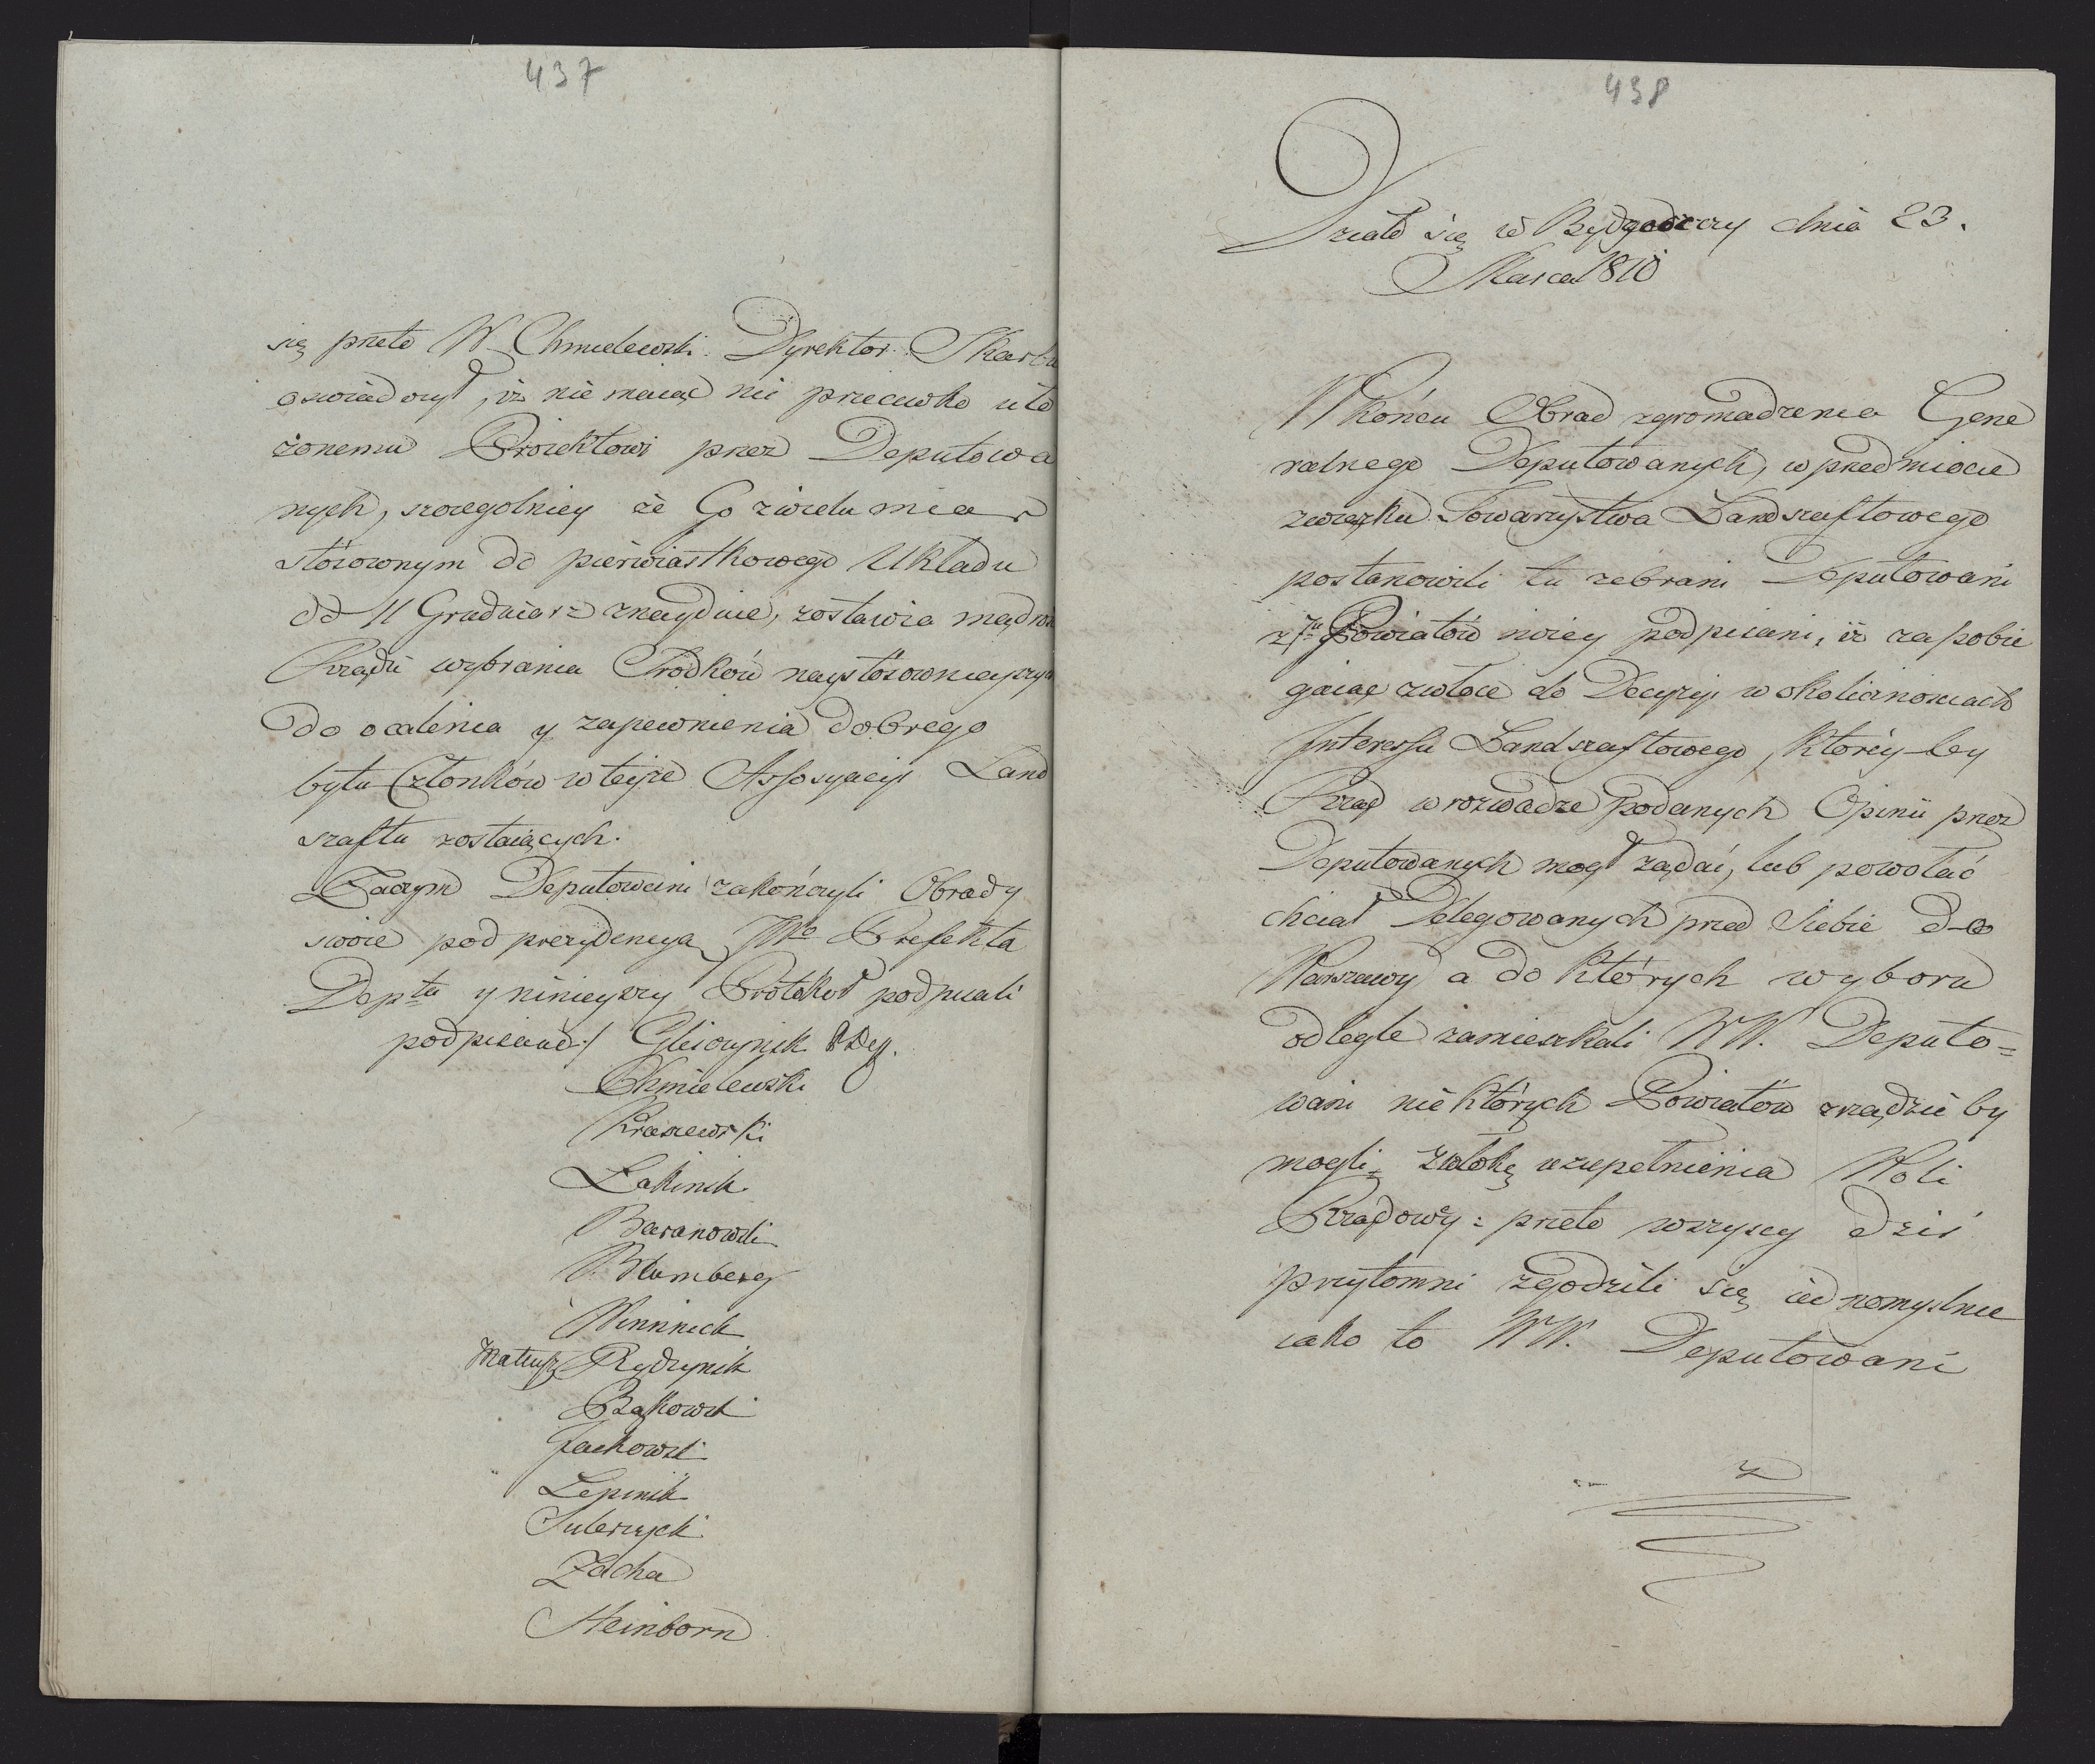 437
się przeto W. Chmielewski Dyrektor Skarbu
oswiadczył, iż nie maiąc nic przeciwko uło
żonemu Proiektowi przez Deputowa
nych, szczegolniey że Go z wielu miar
stósownym do pierwiastkowego Układu
dd 11 Grudnia znayduie, zostawia mądro
Rządu wybrania Srodków naystósownieyszych
do ocalenia y zapewnienia dobrego
bytu Członków w teyże Assosyacyi Land
szaftu zostaiących.
Zaczym Deputowani zakończyli Obrady
swoie pod prezydencyą JWo Prefekta
Depta y ninieyszy Protokoł podpisali
podpisano:/ Gliszczynski
Chmielewski
Kraszewski
Łakinski
Baranowski
Blumberg
Winnicki
Mateusz Rydzynski
Bąkowski
Jackowski
Łepinski
Sulerzycki
Zacha
Heinborn
438
Działo się w Bydgoszczy dnia 23.
Marca 1810
W końcu Obrad zgromadzenia Gene
ralnego Deputowanych, w przedmiocie
związku Towarzystwa Landszaftowego
postanowili tu zebrani Deputowani
z 7iu Powiatów niżey podpisani, iż zapobie
gaiąc zwłoce do Decyzyi w okolicznosciach
Interessu Landszaftowego, ktorey by
Rząd w rozwadze podanych Opinii przez
Deputowanych mogł żądać, lub powołać
chciał Delegowanych przed Siebie do
Warszawy a do których wyboru
odlegle zamieszkali WW. Deputo=
wani niektórych Powiatów zrządzić by
mogli zwłokę uzupełnienia Woli
Rządowéy: przeto wszyscy dziś
przytomni zgodzili się iednomyslnie
iako to WW. Deputowani
z